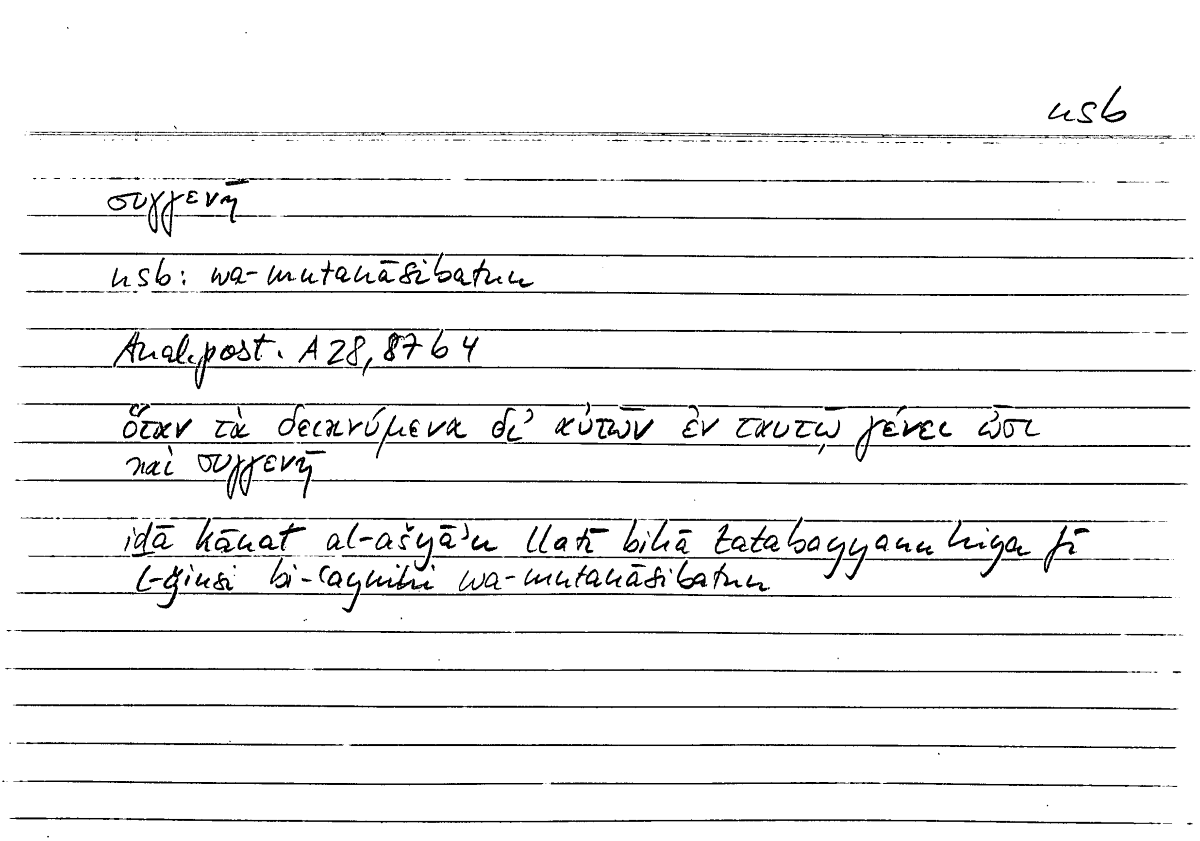 nsb
συγγενῆ
nsb: wa-mutanāsibatun
Anal.post. A 28, 87 b 4
ὅταν τὰ δεικνύμενα δι' αὑτῶν ἐν ταυτῷ γένει ὦσι
καὶ συγγενῆ
iḏā kānat al-ašyāʾu llatī bihā tatabayyanu hiya fī
l-ǧinsi bi-ʿaynihi wa-mutanāsibatun